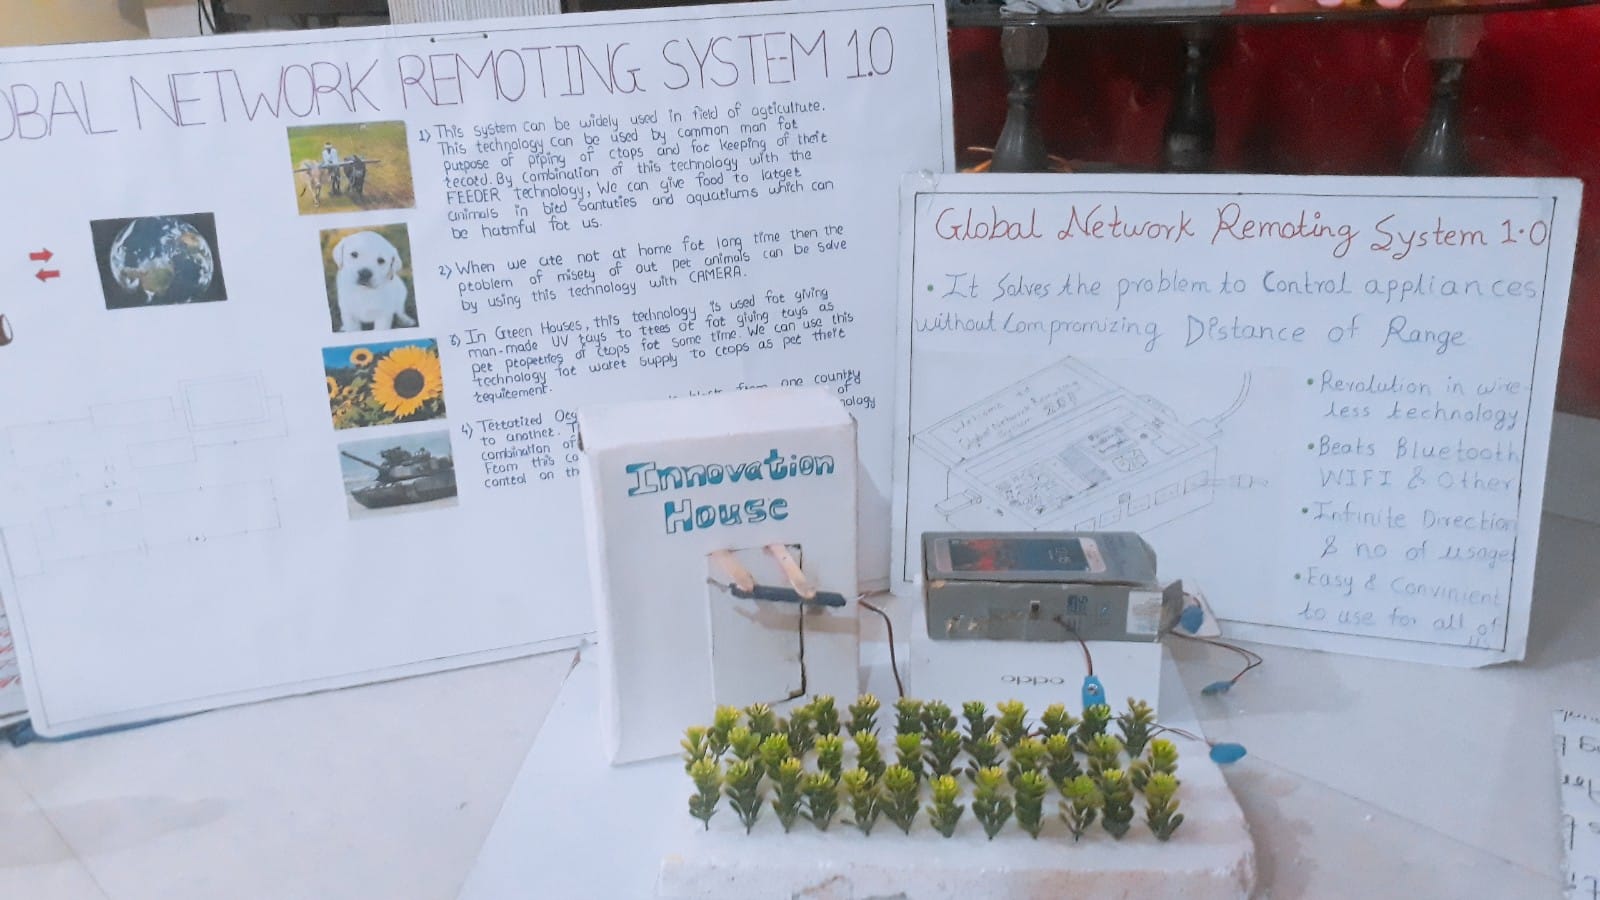 OBAL NETWORK REMOTING SYSTEM 1.0
1) This system can be widely used in field of agriculture.
This technology can be used by common man for
purpose of piping of crops and for keeping of their
record. By combination of this technology with the
FEEDER technology, We can give food to larger
animals in bird Santuties and aquariums which can
be harmful for us.
2) When we are not at home for long time then the
problem of misery of our pet animals can be solve
by using this technology with CAMERA.
3) In Green Houses, this technology is used for giving
man-made UV rays to trees or for giving rays as
per properties of crops for some time. We can use this
technology for water supply to crops as per their
requirement.
4) Terrorized
from one country
to another.
of
combination of
nology
From this co
control on th
Innovation
House
oppo
Global Network Remoting System 1.0
• It Solves the problem to Control appliances
without Compromizing Distance of Range
Welcome to
Global Network Remoting
System
• Revolution in wire-
less technology
• Beats Bluetooth
WIFI & Other
• Infinite Direction
& no of usages
• Easy & Convinient
to use for all of